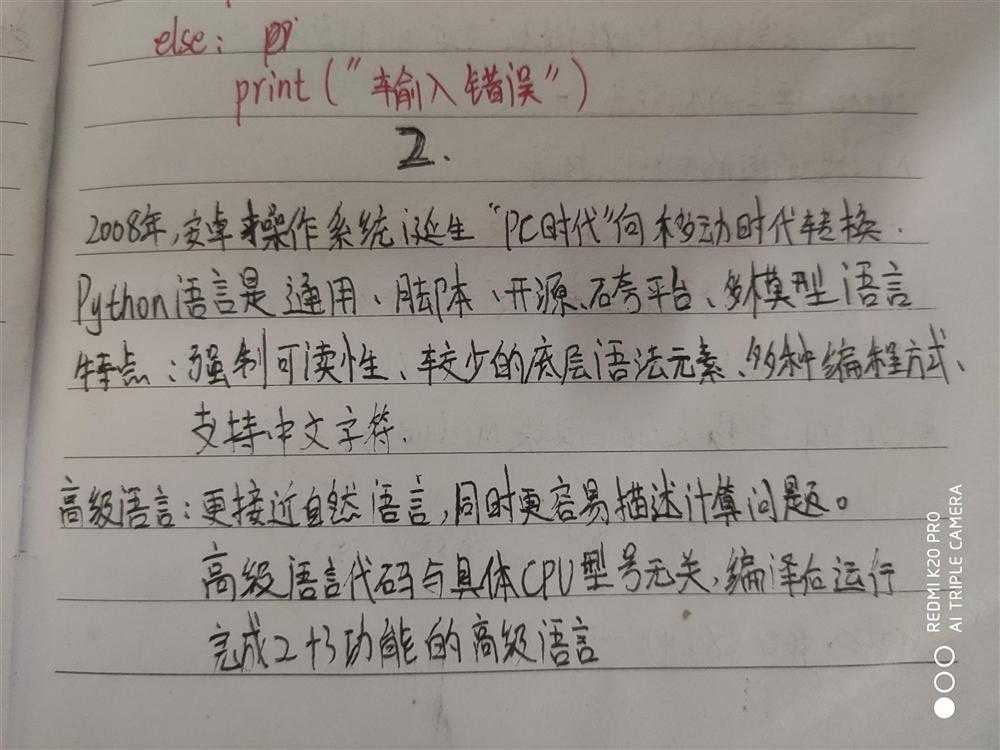 else:
print("输入错误")
2.
2008年,安卓操作系统诞生"PC时代"向移动时代转换.
Python语言是通用、脚本、开源、跨平台、多模型语言
特点:强制可读性、较少的底层语法元素、多种编程方式、
支持中文字符.
高级语言:更接近自然语言,同时更容易描述计算问题。
高级语言代码与具体CPU型号无关,编译后运行
完成2+3功能的高级语言
REDMI K20 PRO
AI TRIPLE CAMERA